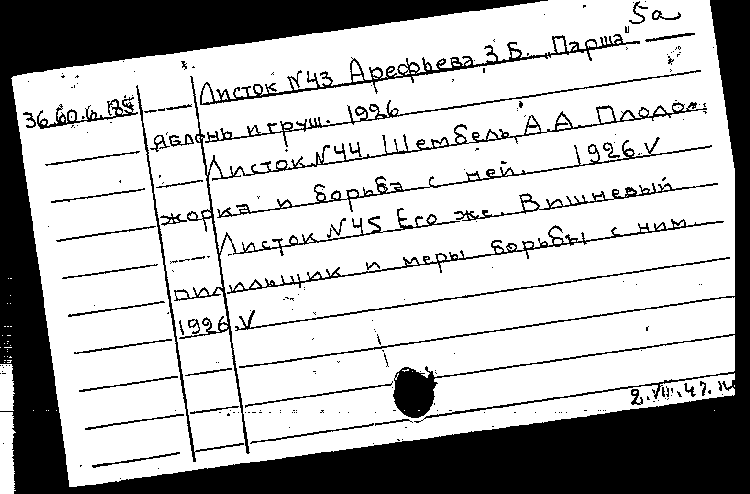 5а
36.60.6. Листок №43 Арефьева, З.Б. "Парша"
яблонь и груш. 1926
Листок №44. Шембель, А.А. Плодо-
жорка и борьба с ней. 1926.V
Листок №45 Его же. Вишневый
пилильщик и меры борьбы с ним.
1926.V
2.VIII.47.